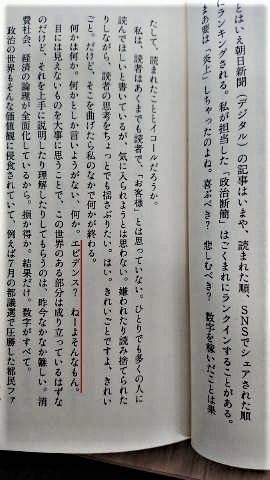 とはいえ朝日新聞（デジタル）の記事はいまや、読まれた順、ＳＮＳでシェアされた順
にランキングされる。私が担当した「政治断簡」はごくまれにランクインすることがある。
まあ要は「炎上」しちゃったのよね。喜ぶべき？　悲しむべき？　数字を稼いだことは果
たして、読まれたこととイコールだろうか。
私は、読者はあくまでも読者で、「お客様」とは思っていない。ひとりでも多くの人に
読んでほしいと書いているが、気に入られようとは思わない。嫌われたり読み捨てられた
りしながら、読者の思考をちょっとでも揺さぶりたい。はい。きれいごとですよ、きれい
ごと。だけど、そこを曲げたら私のなかで何かが終わる。
何かは何か。何かとしか言いようがない、何か。エビデンス？　ねーよそんなもん。
目には見えないものを大事に思うことで、この世界のある部分は成り立っているはずな
のだけど、それを上手に説明したり理解してもらうのは、昨今なかなか難しい。消
費社会、経済の論理が全面化しているから。損か得か。結果だけ。数字がすべて。
政治の世界もそんな価値観に侵食されていて、例えば７月の都議選で圧勝した都民ファ